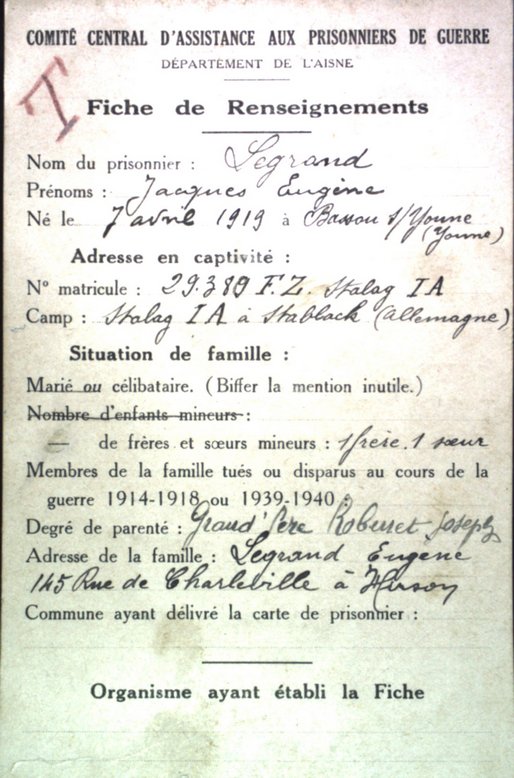 COMITÉ CENTRAL D'ASSISTANCE AUX PRISONNIERS DE GUERRE
DÉPARTEMENT DE L'AISNE
T
Fiche de Renseignements
Nom du prisonnier : Legrand
Prénoms : Jacques Eugène
Né le 7 avril 1919 à Bassou s/Yonne
(Yonne)
Adresse en captivité :
N° matricule : 29.389 F.Z. Stalag IA
Camp : Stalag IA à Stablack (Allemagne)
Situation de famille :
Marié ou célibataire. (Biffer la mention inutile.)
Nombre d'enfants mineurs :
— de frères et sœurs mineurs : 1 frère. 1 sœur
Membres de la famille tués ou disparus au cours de la
guerre 1914-1918 ou 1939-1940 :
Degré de parenté : Grand'Père Joseph
Adresse de la famille : Legrand Eugène
145 Rue de Charleville à Hirson
Commune ayant délivré la carte de prisonnier :
Organisme ayant établi la Fiche